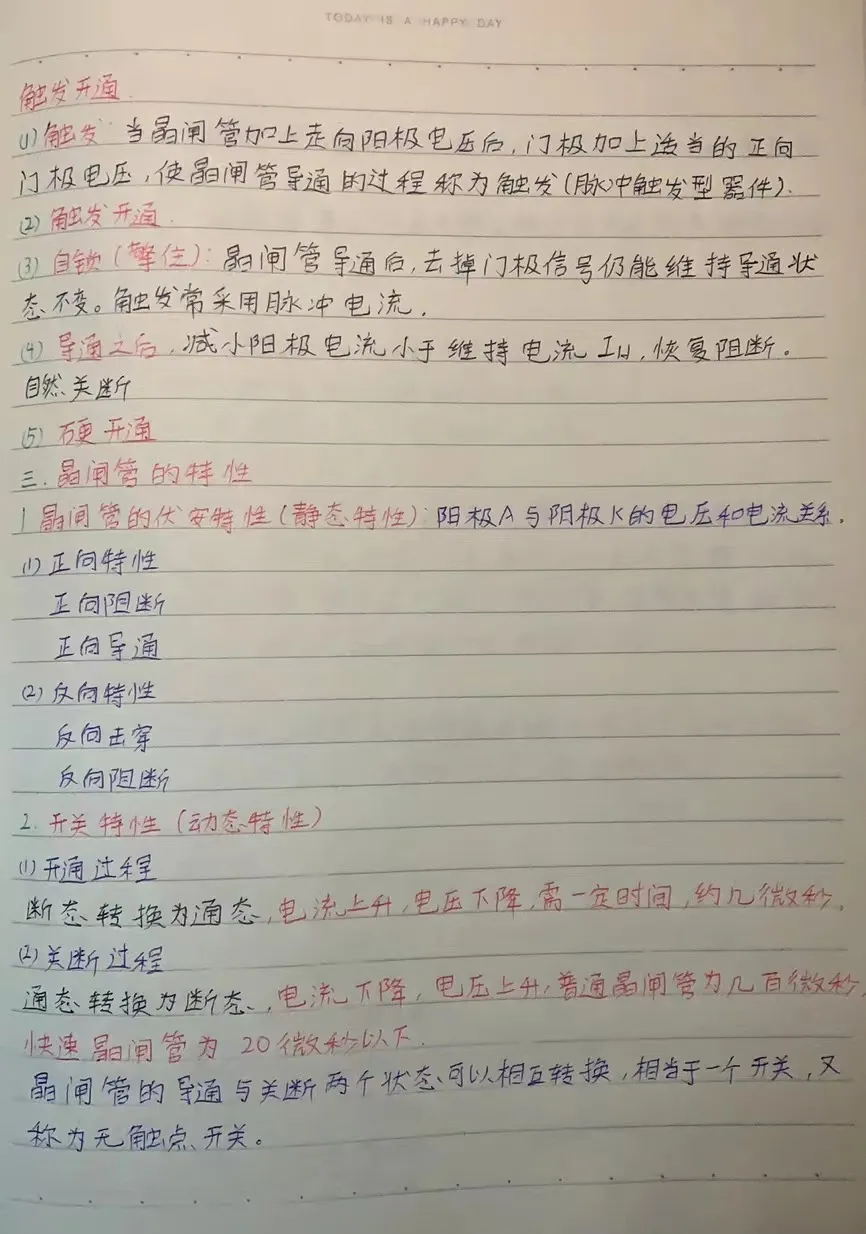 TODAY IS A HAPPY DAY
触发开通
(1) 触发：当晶闸管加上走向阳极电压后，门极加上适当的正向
门极电压，使晶闸管导通的过程称为触发(脉冲触发型器件)．
(2) 触发开通．
(3) 自锁(擎住)：晶闸管导通后，去掉门极信号仍能维持导通状
态不变。触发常采用脉冲电流．
(4) 导通之后，减小阳极电流小于维持电流IH，恢复阻断。
自然关断
(5) 硬开通
三．晶闸管的特性
1 晶闸管的伏安特性(静态特性)：阳极A与阴极K的电压和电流关系．
(1) 正向特性
正向阻断
正向导通
(2) 反向特性
反向击穿
反向阻断
2．开关特性(动态特性)
(1) 开通过程
断态转换为通态，电流上升，电压下降，需一定时间，约几微秒．
(2) 关断过程
通态转换为断态，电流下降，电压上升，普通晶闸管为几百微秒，
快速晶闸管为20微秒以下．
晶闸管的导通与关断两个状态可以相互转换，相当于一个开关，又
称为无触点开关。